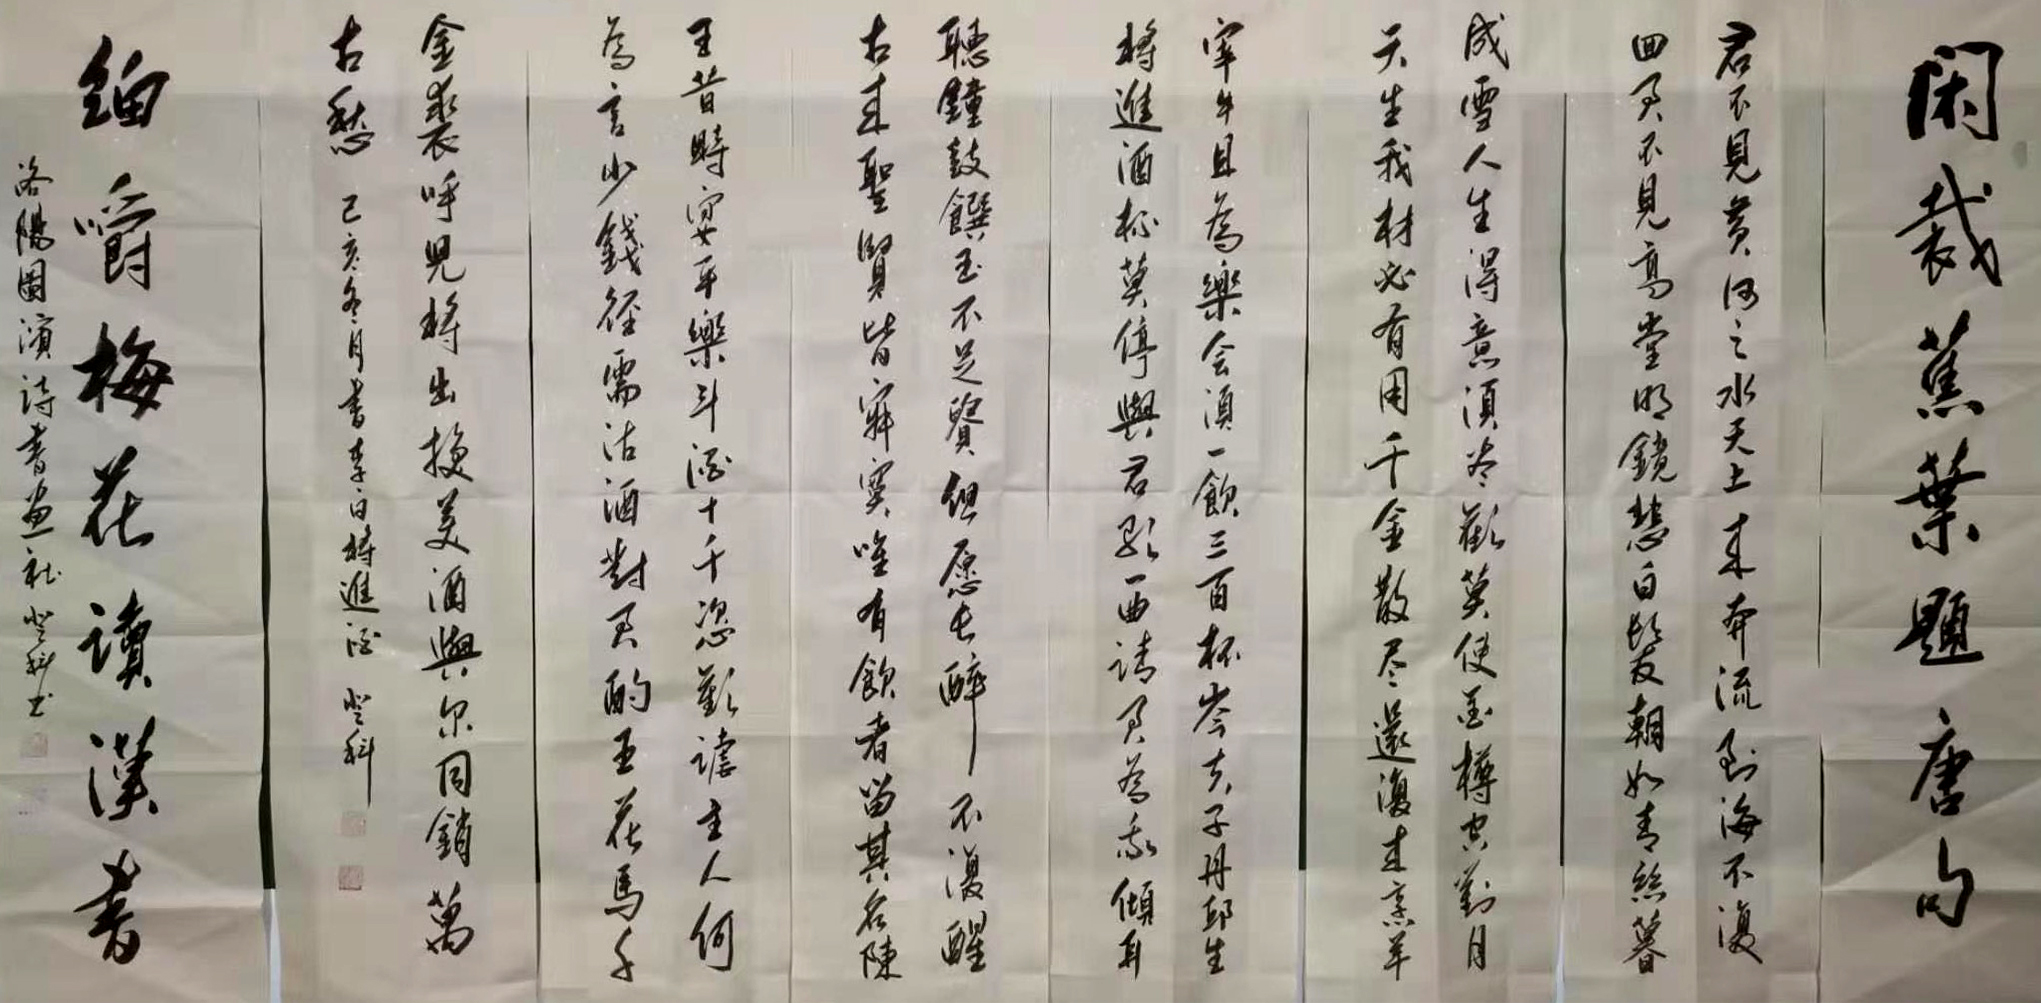 闲裁蕉葉題唐句
君不見黄河之水天上来奔流到海不復
回君不見高堂明鏡悲白髮朝如青絲暮
成雪人生得意須盡歡莫使金樽空對月
天生我材必有用千金散尽還復来烹羊
宰牛且為樂会須一飲三百杯岑夫子丹邱生
将進酒杯莫停與君歌一曲請君為我傾耳
聽鐘鼓饌玉不足貴但愿长醉不復醒
古来聖賢皆寂寞唯有飲者留其名陳
王昔時宴平樂斗酒十千恣歡謔主人何
為言少錢徑需沽酒對君酌五花馬千
金裘呼児将出換美酒與尔同銷萬
古愁 己亥冬月書李白将進酒 登科
細嚼梅花讀漢書
洛陽國濱詩書画社登科书